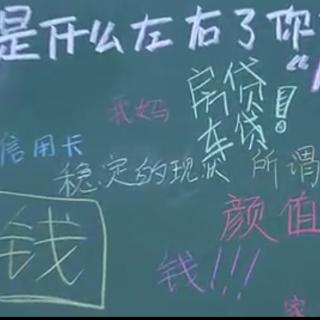 是什么左右了你
我妈
房贷
车贷!
信用卡
稳定的现状
所谓
颜值
钱
钱!!!
家